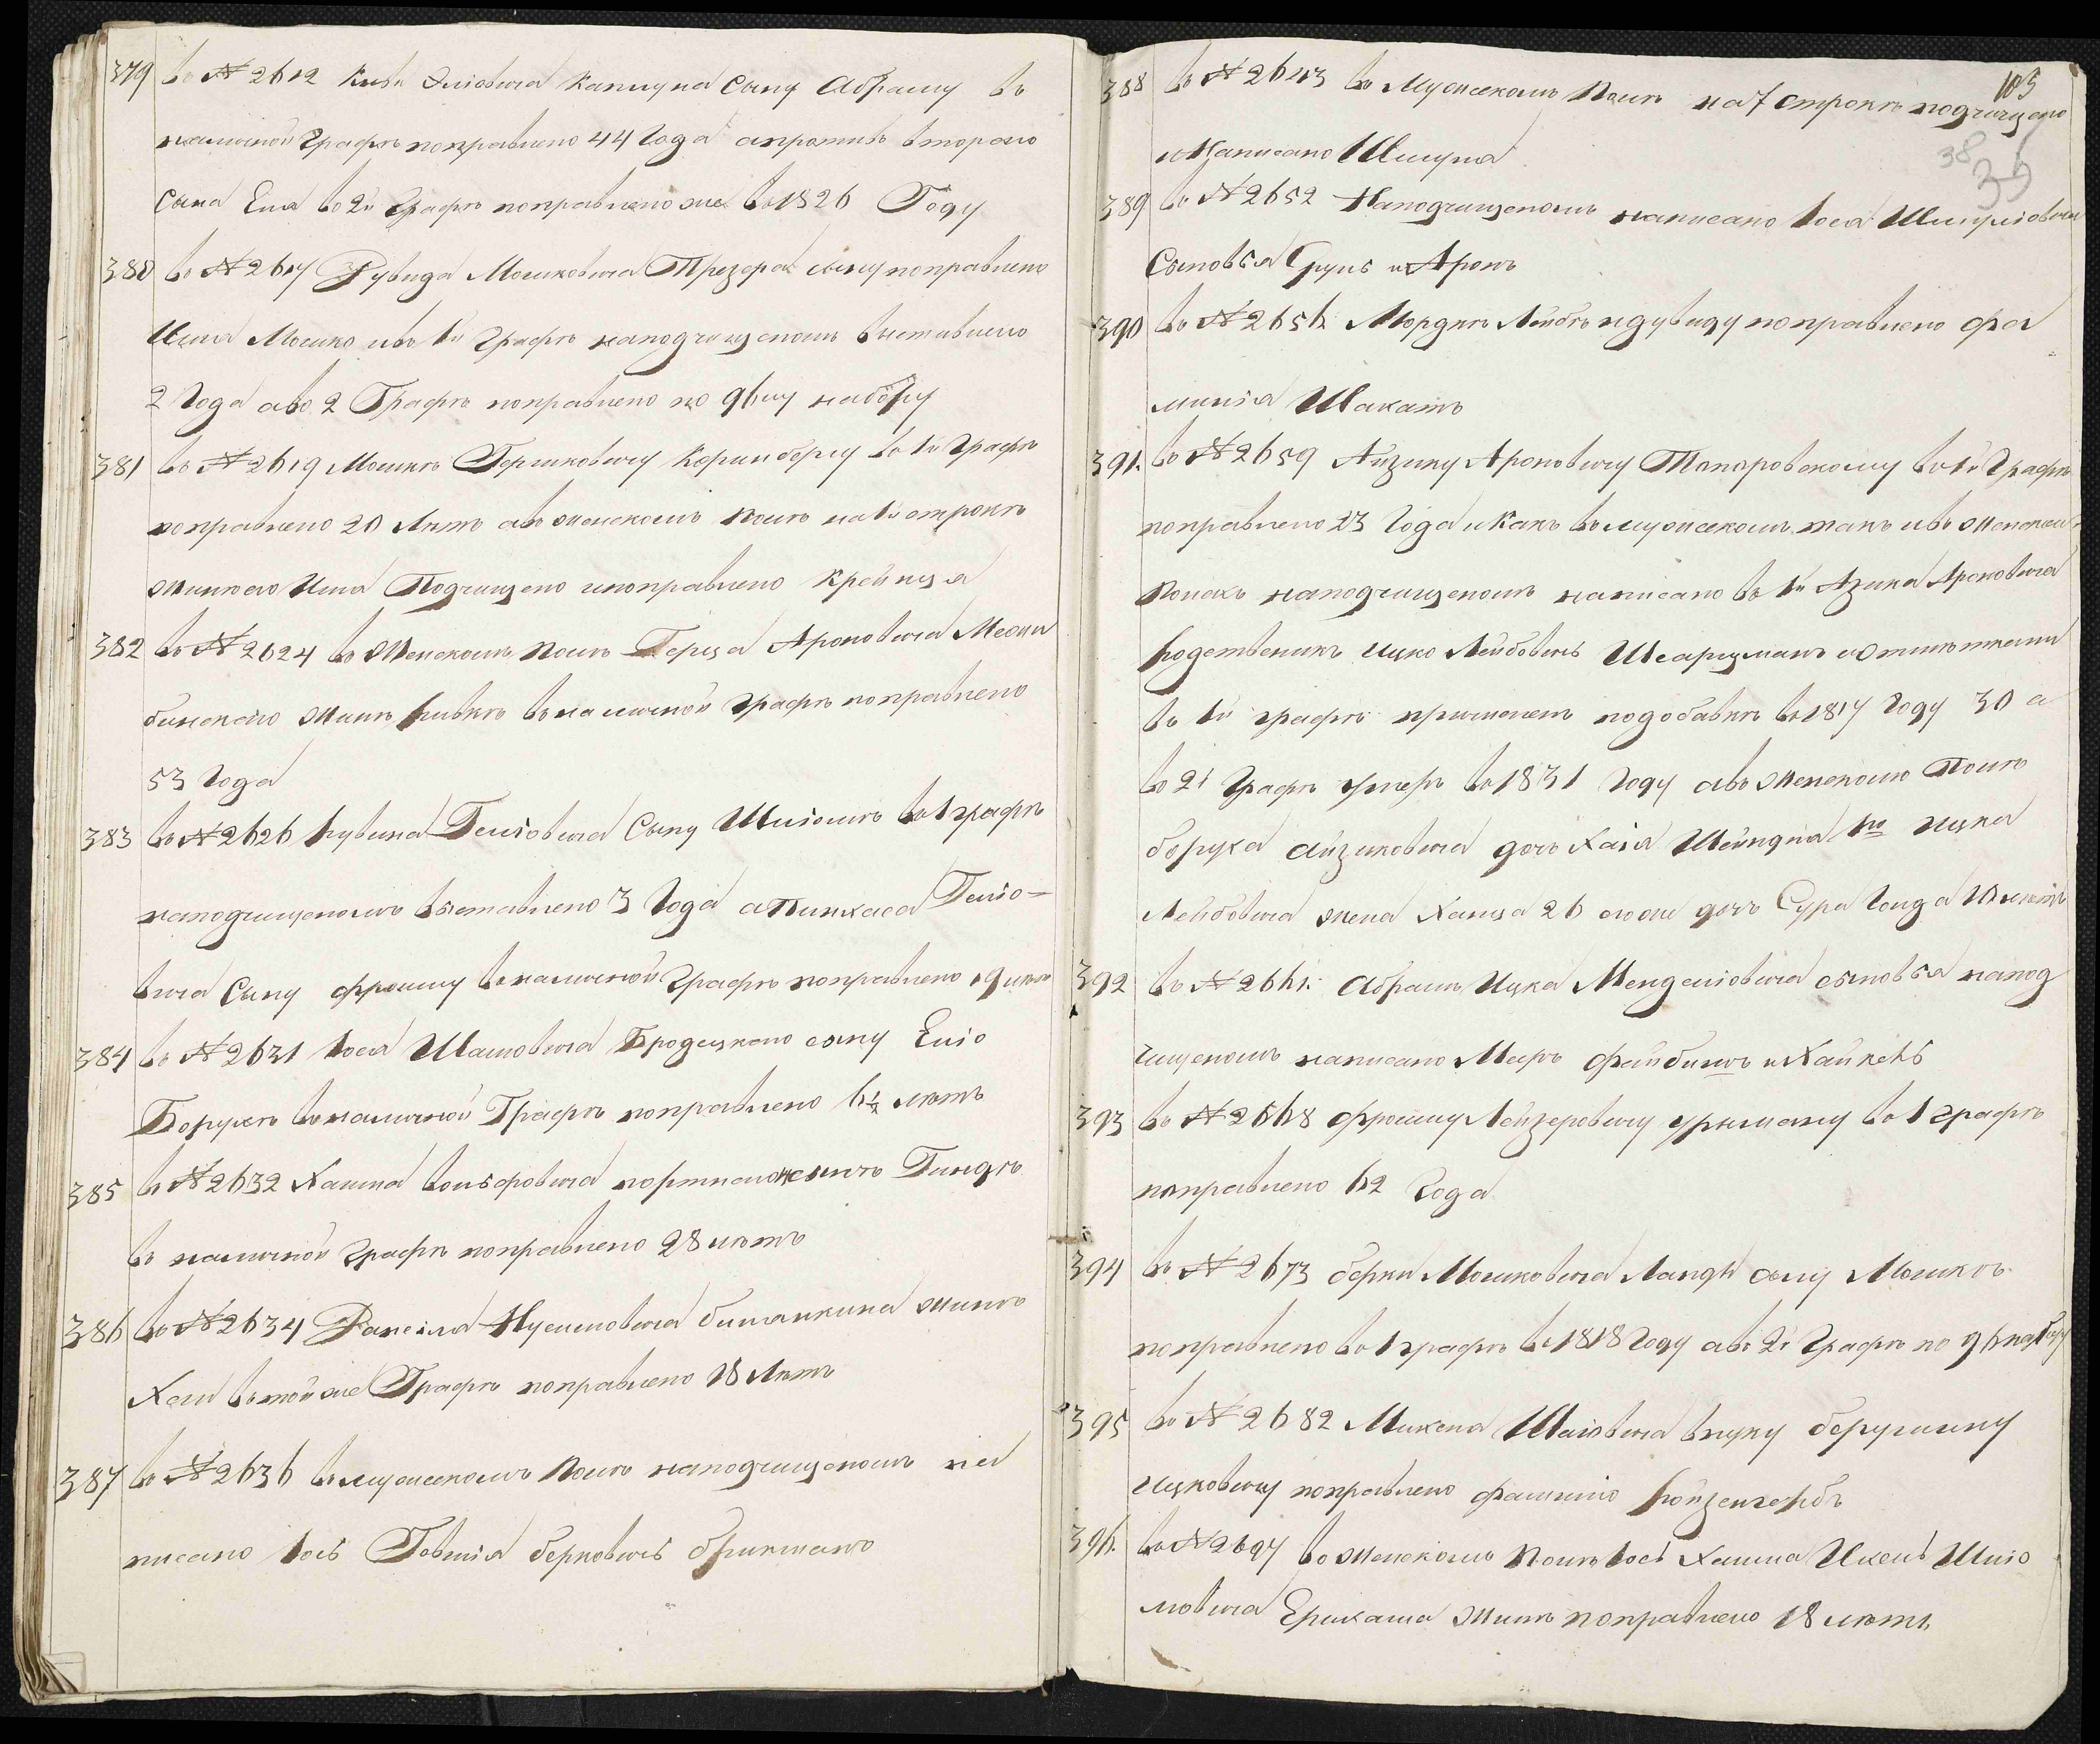 379 въ № 2612 Кивы Эліовича Каплуна сыну Абраму въ
наличной графѣ поправлено 44 года а противъ второго
сына Еля во 2й графѣ поправлено же въ 1826 Году
380 въ № 2617 Дувида Мошковича Трезора сыну поправлено
Имя Мошко и въ 1й графѣ на подчищеномъ выставлено
2 Года а во 2 Графѣ поправлено по 96му набору
381 въ № 2619 Мошкѣ Гершковичу въ 1й Графѣ
поправлено 20 Лѣтъ а въ женскомъ полѣ на 1й строкѣ
жинкѣ его Имя Подчищено и поправлено Крейнця
382 въ № 2624 въ Женскомъ полѣ Герца Ароновича
жинѣ Ривкѣ въ наличной графѣ поправлено
53 Года
383 въ № 2626 Рувина Геліовича Сыну Шліомѣ въ 1 графѣ
на подчищеномъ выставлено 3 Года а Пинхаса Геліо-
вича Сыну Фроиму въ наличной Графѣ поправлено 19 лѣтъ
384 въ № 2631 Іося Шамовича Бродецкаго сыну Еліо
Боруху въ наличной Графѣ поправлено 6½ лѣтъ
385 въ № 2632 Хаима Вольфовича Портного жинѣ Гиндѣ
въ наличной графѣ поправлено 28 лѣтъ
386 въ № 2634 Даніила Нусимовича жинѣ
Хаи въ той же Графѣ поправлено 18 Лѣтъ
387 въ № 2636 въ мужескомъ полѣ на подчищеномъ на
писано Іось Товшія Берковичъ
105
38
39
388 въ № 2643 въ Мужескомъ Полѣ на 7 строкѣ подчищено
и Написано Шмуля
389 въ № 2652 На подчищеномъ написано Іося Шмуліовича
Сыновья Сруль и Аронъ
390 въ № 2656 Мордкѣ Лейбѣ и Дувиду поправлено фа
милія Шакатъ
391. въ № 2659 Айзику Ароновичу въ 1й Графѣ
поправлено 23 Года и какъ въ мужескомъ такъ и въ женскомъ
Полахъ на подчищеномъ написано въ 1й Азика Ароновича
Родственикъ Ицко Лейбовичъ Шварцманъ и отмѣтками
въ 1й графѣ причисленъ по добавкѣ въ 1817 Году 30 а
во 2й Графѣ умеръ въ 1831 Году а въ женскомъ Полѣ
Боруха Айзиковича дочь Хаія Шейндля 1½ Ицка
Лейбовича жена Ханця 26 его же дочь Сура Гонда 10 лѣтъ
392 въ № 2661. Абрамъ Ицка Менделіовича сыновья на под
чищеномъ написано Меръ Файбишъ и Хайкель
393 въ № 2668 Фроиму Лейзеровичу въ 1 графѣ
поправлено 62 Года
394 въ № 2673 Берки Мошковича Ланды сыну Мошкѣ
поправлено въ 1 графѣ въ 1818 Году а во 2й Графѣ по 96 набору
395 въ № 2682 Михеля Шаіовича внуку
Ицковичу поправлено фамилію
396. въ № 2697 въ женскомъ Полѣ Іось Хаима Ихель Шліо
мовича жинѣ поправлено 18 лѣтъ